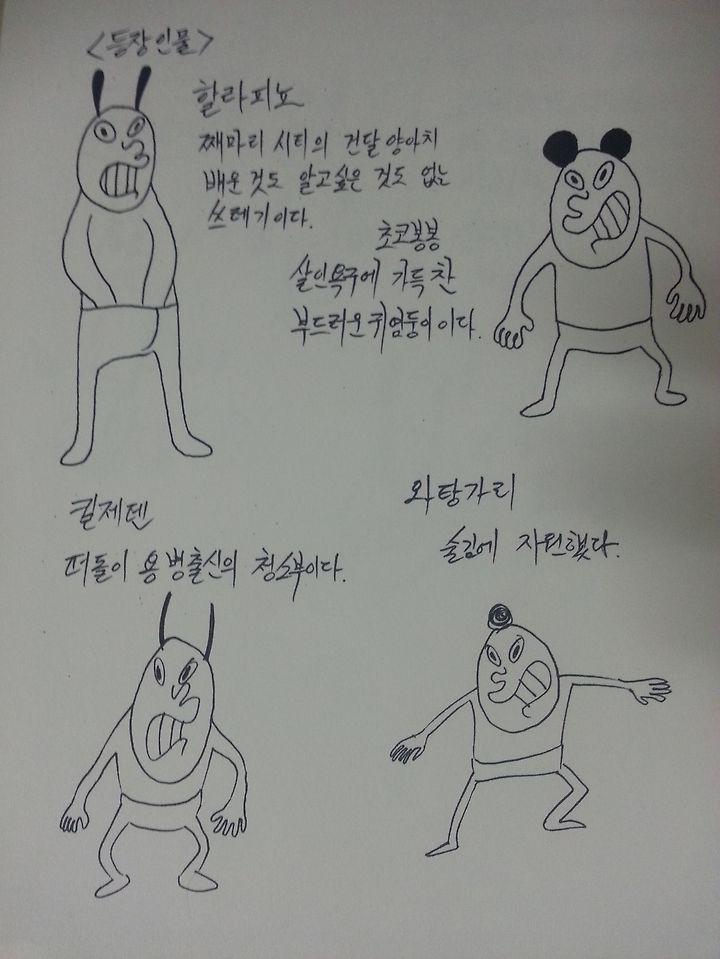 <등장인물>
할라피뇨
째마리 시티의 건달 양아치
배운 것도 알고싶은 것도 없는
쓰레기이다.
초코봉봉
살인욕구에 가득 찬
부드러운 귀염둥이이다.
킬제덴
떠돌이 용병출신의 청소부이다.
와탕가리
술김에 자원했다.